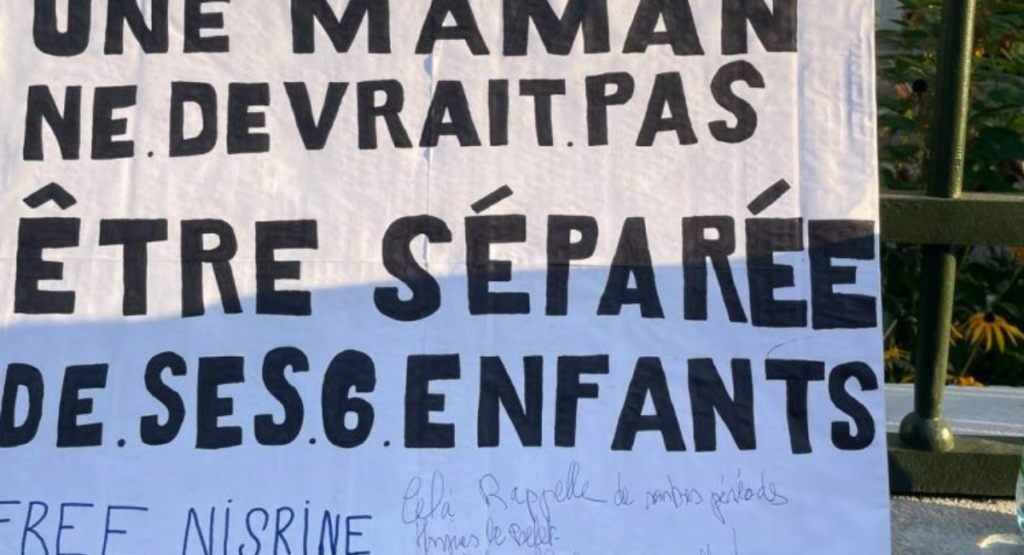 UNE MAMAN
NE.DEVRAIT.PAS
ÊTRE SÉPARÉE
DE.SES.6.ENFANTS
FREE NISRINE
Celà Rappelle de sombres périodes